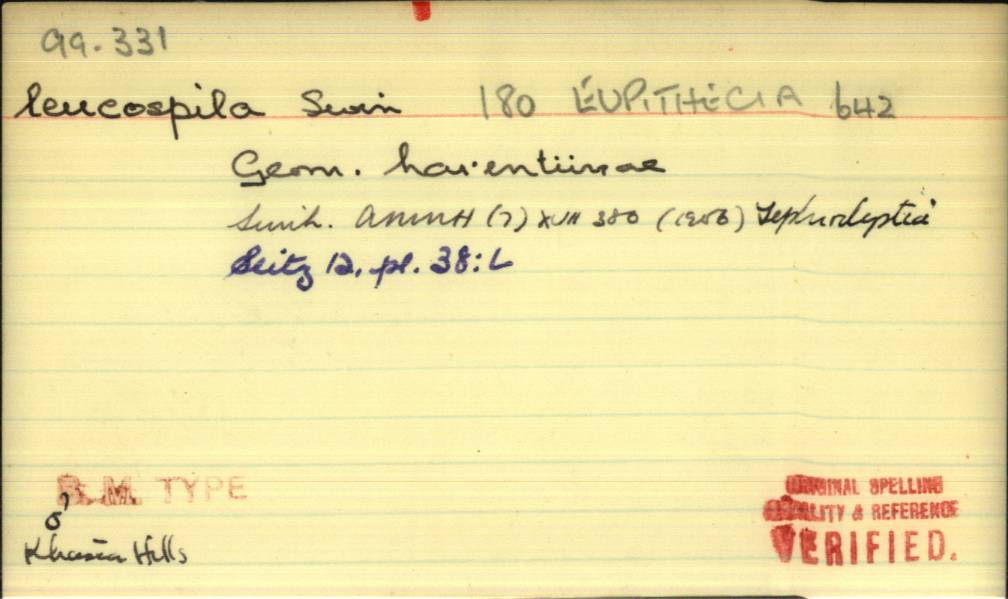 99.331
leucospila Swin 180 EUPITHECIA 642
Geom. larentiinae
Swinh. AMNH (7) XVII 380 (1906) Tephroclystia
Seitz 12. pl. 38: L
B.M. TYPE
♂
Khasia Hills
ORIGINAL SPELLING
LITY & REFERENCE
VERIFIED.